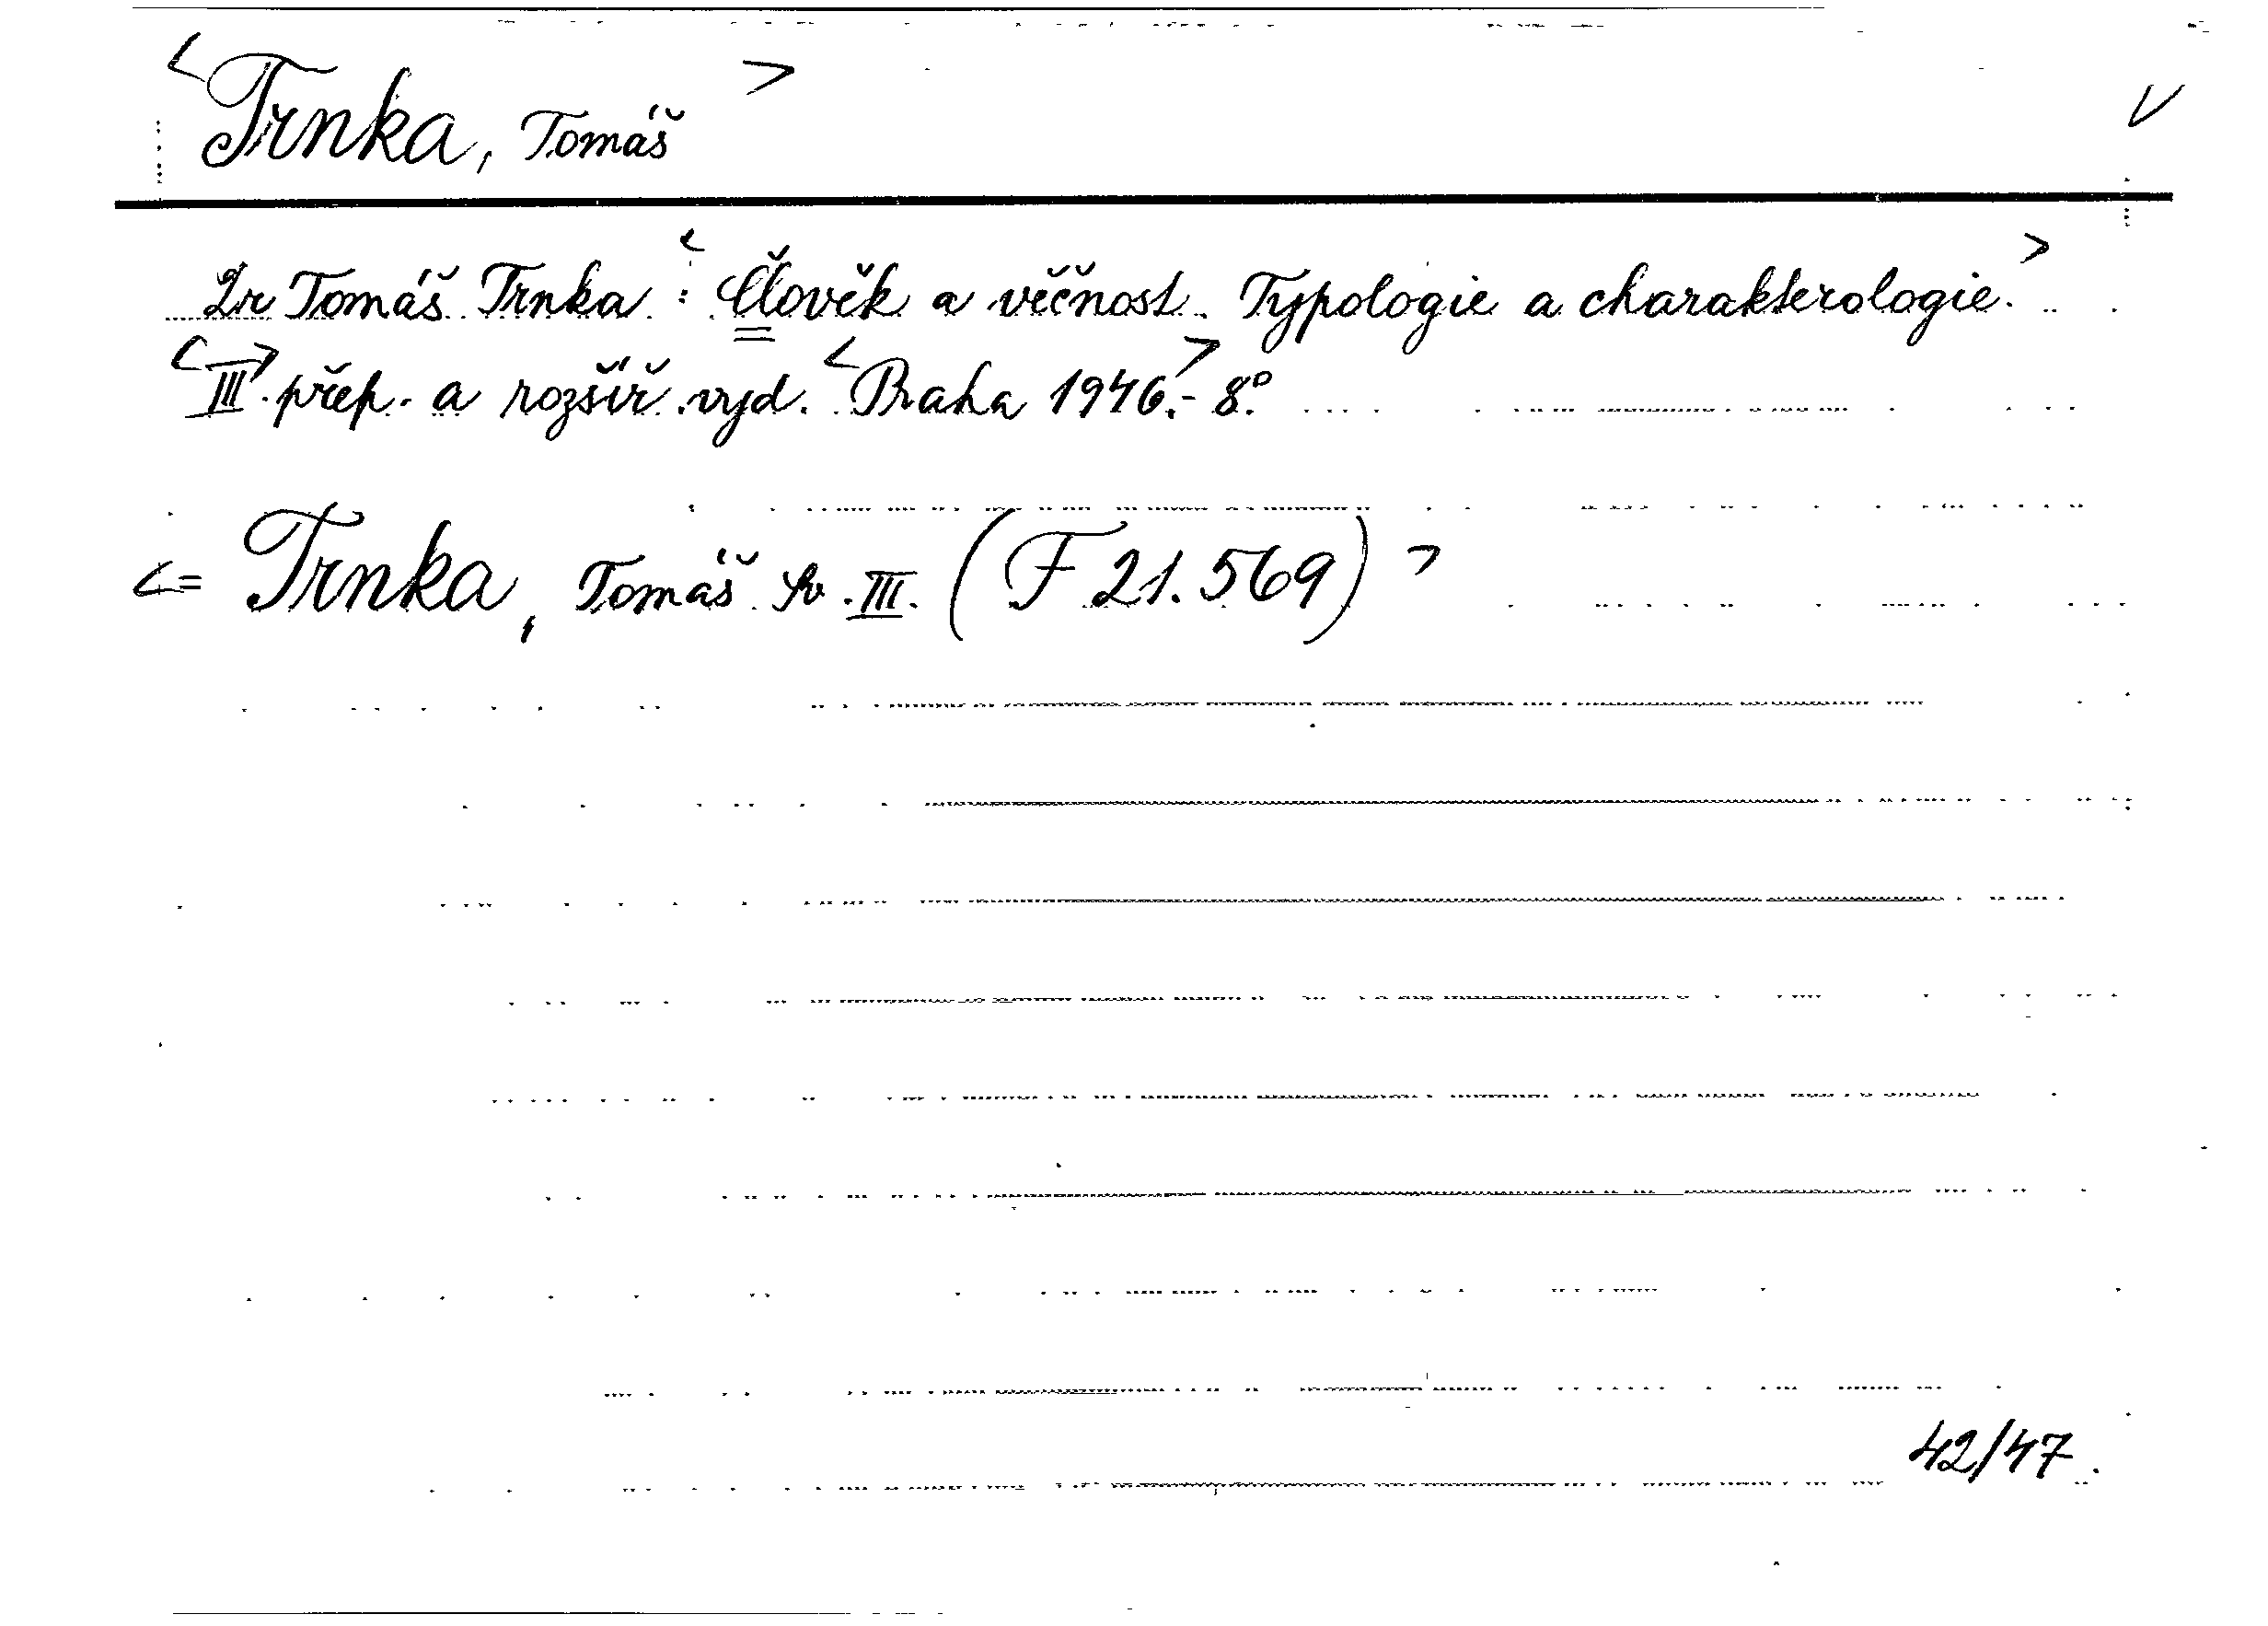 <Trnka, Tomáš> V
Dr Tomáš Trnka: <Člověk a věčnost. Typologie a charakterologie.>
<III>. přep. a rozšíř. vyd. <Praha 1946.>- 8°.
<= Trnka, Tomáš Sv. III. (F 21.569)>
42/47.